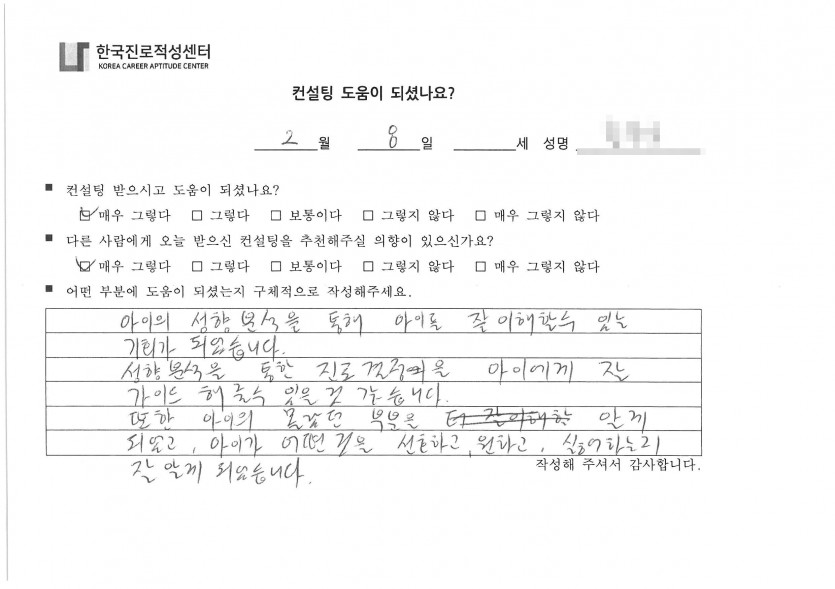 한국진로적성센터
KOREA CAREER APTITUDE CENTER
컨설팅 도움이 되셨나요?
2 월 8 일 세 성명
■ 컨설팅 받으시고 도움이 되셨나요?
☑ 매우 그렇다 □ 그렇다 □ 보통이다 □ 그렇지 않다 □ 매우 그렇지 않다
■ 다른 사람에게 오늘 받으신 컨설팅을 추천해주실 의향이 있으신가요?
☑ 매우 그렇다 □ 그렇다 □ 보통이다 □ 그렇지 않다 □ 매우 그렇지 않다
■ 어떤 부분에 도움이 되셨는지 구체적으로 작성해주세요.
아이의 성향 분석을 통해 아이를 잘 이해할수 있는
기회가 되었습니다.
성향분석을 통한 진로 결정을 아이에게 잘
가이드 해 줄수 있을 것 같습니다.
또한 아이의 몰랐던 부분을 알게
되었고, 아이가 어떤 것을 선호하고, 원하고, 싫어하는지
잘 알게 되었습니다.
작성해 주셔서 감사합니다.